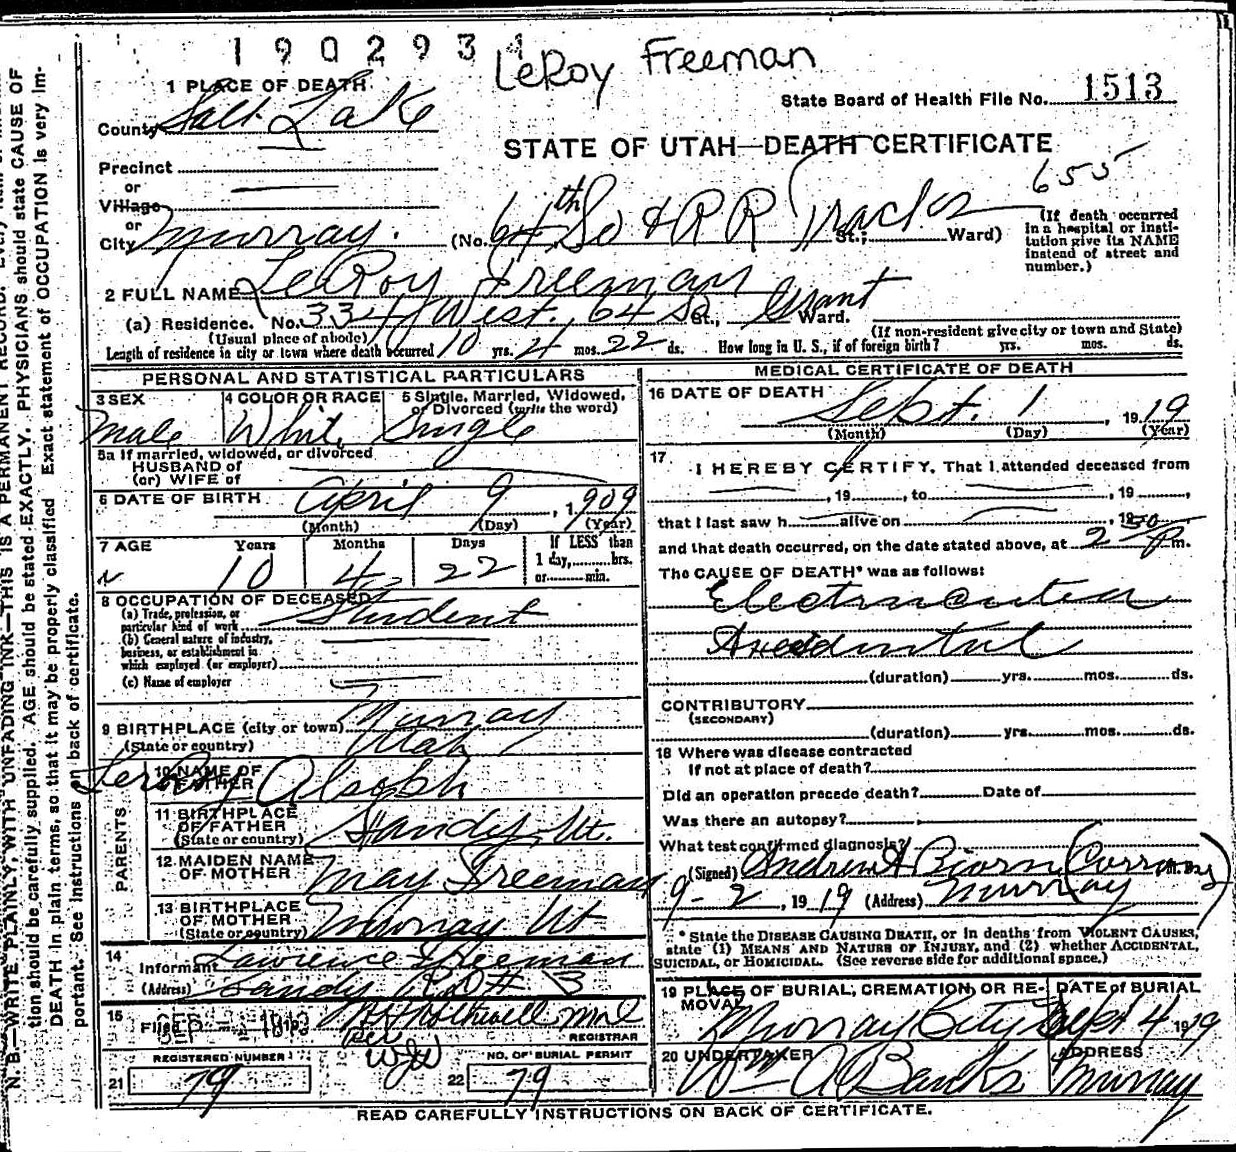 190293
LeRoy Freeman
1 PLACE OF DEATH
State Board of Health File No. 1513
County Salt Lake
STATE OF UTAH—DEATH CERTIFICATE
Precinct
or
Village
or
City Murray. (No. 64th So & RR Tracks St.; Ward)
655
(If death occurred
in a hospital or insti-
tution give its NAME
instead of street and
number.)
2 FULL NAME LeRoy Freeman
(a) Residence. No. 334 West, 64 So St., Grant Ward.
(Usual place of abode) (If non-resident give city or town and State)
Length of residence in city or town where death occurred 10 yrs. 4 mos. 22 ds. How long in U. S., if of foreign birth? yrs. mos. ds.
PERSONAL AND STATISTICAL PARTICULARS
3 SEX 4 COLOR OR RACE 5 Single, Married, Widowed,
or Divorced (write the word)
Male White Single
5a If married, widowed, or divorced
HUSBAND of
(or) WIFE of
6 DATE OF BIRTH April 9, 1909
(Month) (Day) (Year)
7 AGE Years Months Days If LESS than
1 day, hrs.
or min.
10 4 22
8 OCCUPATION OF DECEASED
(a) Trade, profession, or
particular kind of work Student
(b) General nature of industry,
business, or establishment in
which employed (or employer)
(c) Name of employer
9 BIRTHPLACE (city or town) Murray
(State or country) Utah
PARENTS
10 NAME OF
FATHER
11 BIRTHPLACE
OF FATHER Sandy, Ut.
(State or country)
12 MAIDEN NAME
OF MOTHER May Freeman
13 BIRTHPLACE
OF MOTHER Murray Ut
(State or country)
14
Informant Lawrence Freeman
(Address) Sandy RD # 3
15
Filed SEP
REGISTRAR
REGISTERED NUMBER NO. OF BURIAL PERMIT
21 79 22 79
MEDICAL CERTIFICATE OF DEATH
16 DATE OF DEATH
Sept. 1, 1919
(Month) (Day) (Year)
17
I HEREBY CERTIFY, That I attended deceased from
, 19 , to , 19 ,
that I last saw h alive on , 19
and that death occurred, on the date stated above, at 2 30 P m.
The CAUSE OF DEATH* was as follows:
Electrocution
Accidental
(duration) yrs. mos. ds.
CONTRIBUTORY
(SECONDARY)
(duration) yrs. mos. ds.
18 Where was disease contracted
If not at place of death?
Did an operation precede death? Date of
Was there an autopsy?
What test confirmed diagnosis?
(Signed) Andrew Bjorn M. D.
9-2, 1919 (Address) Murray
* State the DISEASE CAUSING DEATH, or in deaths from VIOLENT CAUSES,
state (1) MEANS AND NATURE OF INJURY, and (2) whether ACCIDENTAL,
SUICIDAL, or HOMICIDAL. (See reverse side for additional space.)
19 PLACE OF BURIAL, CREMATION, OR RE-
MOVAL
DATE of BURIAL
Murray City Sept 4 1919
20 UNDERTAKER ADDRESS
Wm A Banks Murray
READ CAREFULLY INSTRUCTIONS ON BACK OF CERTIFICATE.
N. B.—WRITE PLAINLY, WITH UNFADING INK—THIS IS A PERMANENT RECORD.
tion should be carefully supplied. AGE should be stated EXACTLY. PHYSICIANS should state CAUSE OF
DEATH in plain terms, so that it may be properly classified. Exact statement of OCCUPATION is very im-
portant. See instructions on back of certificate.